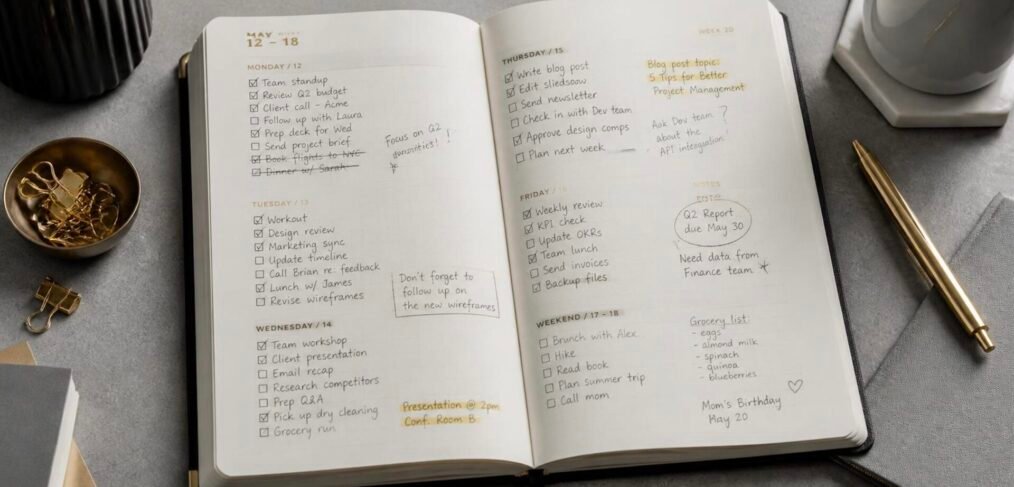 MAY
12 – 18
MONDAY / 12
☑ Team standup
☑ Review Q2 budget
☑ Client call – Acme
☐ Follow up with Laura
☑ Prep deck for Wed
☐ Send project brief
☑ Book flights to NYC
☑ Dinner w/ Sarah
Focus on Q2
!
TUESDAY / 13
☑ Workout
☑ Design review
☑ Marketing sync
☐ Update timeline
☐ Call Brian re: feedback
☑ Lunch w/ James
☐ Revise wireframes
Don't forget to
follow up on
the new wireframes
WEDNESDAY / 14
☑ Team workshop
☑ Client presentation
☐ Email recap
☐ Research competitors
☐ Prep Q&A
☑ Pick up dry cleaning
☐ Grocery run
Presentation @ 2pm
Conf. Room B
WEEK 20
THURSDAY / 15
☑ Write blog post
☑ Edit sliedsoow
☐ Send newsletter
☐ Check in with Dev team
☑ Approve design comps
☐ Plan next week
Blog post topic:
5 Tips for Better
Project Management
Ask Dev team ?
about the
API
FRIDAY / 16
☑ Weekly review
☑ KPI check
☐ Update OKRs
☑ Team lunch
☐ Send invoices
☑ Backup files
NOTES
Q2 Report
due May 30
Need data from
Finance team *
WEEKEND / 17 – 18
☐ Brunch with Alex
☐ Hike
☐ Read book
☐ Plan summer trip
☐ Call mom
Grocery list:
- eggs
- almond milk
- spinach
- quinoa
- blueberries
Mom's Birthday ♡
May 20